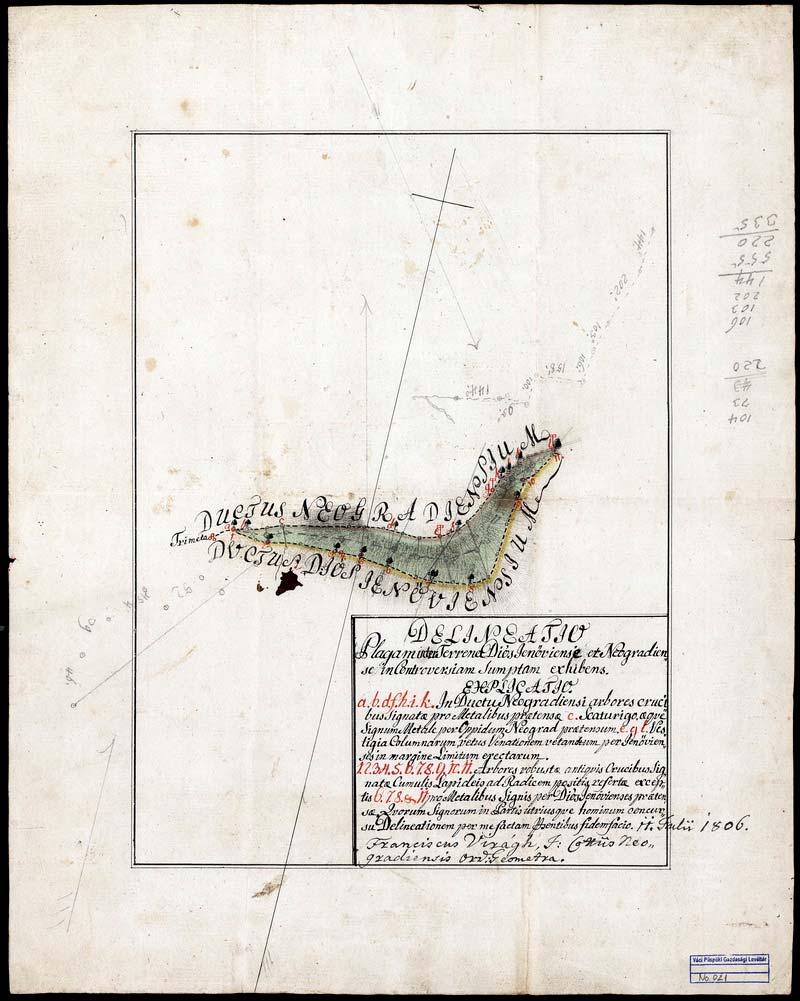 DUCTUS NEOGRADIENSIUM
Trimetalis
DUCTUS DIOSIENOVIENSIUM
DELINEATIO
Plagam inter Terrena Diós Jenöviense et Neogradien
se in Controversiam Sumptam exhibens.
EXPLICATIO.
a.b.d.f.h.i.k. In Ductu Neogradiensi arbores cruci
bus Signatæ pro Metalibus prætensæ c. Scaturigo, æque
Signum Metale per Oppidum Neograd prætensum. e.g.l. Ves
tigia Columnarum, vetus Venationem vetantium per Jenövien
ses in margine Limitum erectarum.
1.2.3.4.5.6.7.8.9.10.11. Arbores robustæ antiquis Crucibus Sig
natæ Cumulis Lapideis ad Radicem positis refertæ excep
tis 6.7.8. & 11 pro Metalibus Signis per Diós Jenövienses præten
sæ Quorum Signorum in Partis utriusque hominum concur
su Delineationem per me factam Præsentibus fidem facio. 11. Julii 1806.
Franciscus Virágh, I. Cottûs Neo„
gradiensis Ord. Geometra.
144.
202.
103.
106.
158.
100.
144.
92
46.
104
73
43
220
106
103
202
144
555
220
335
Váci Püspöki Gazdasági Levéltár
No. 021